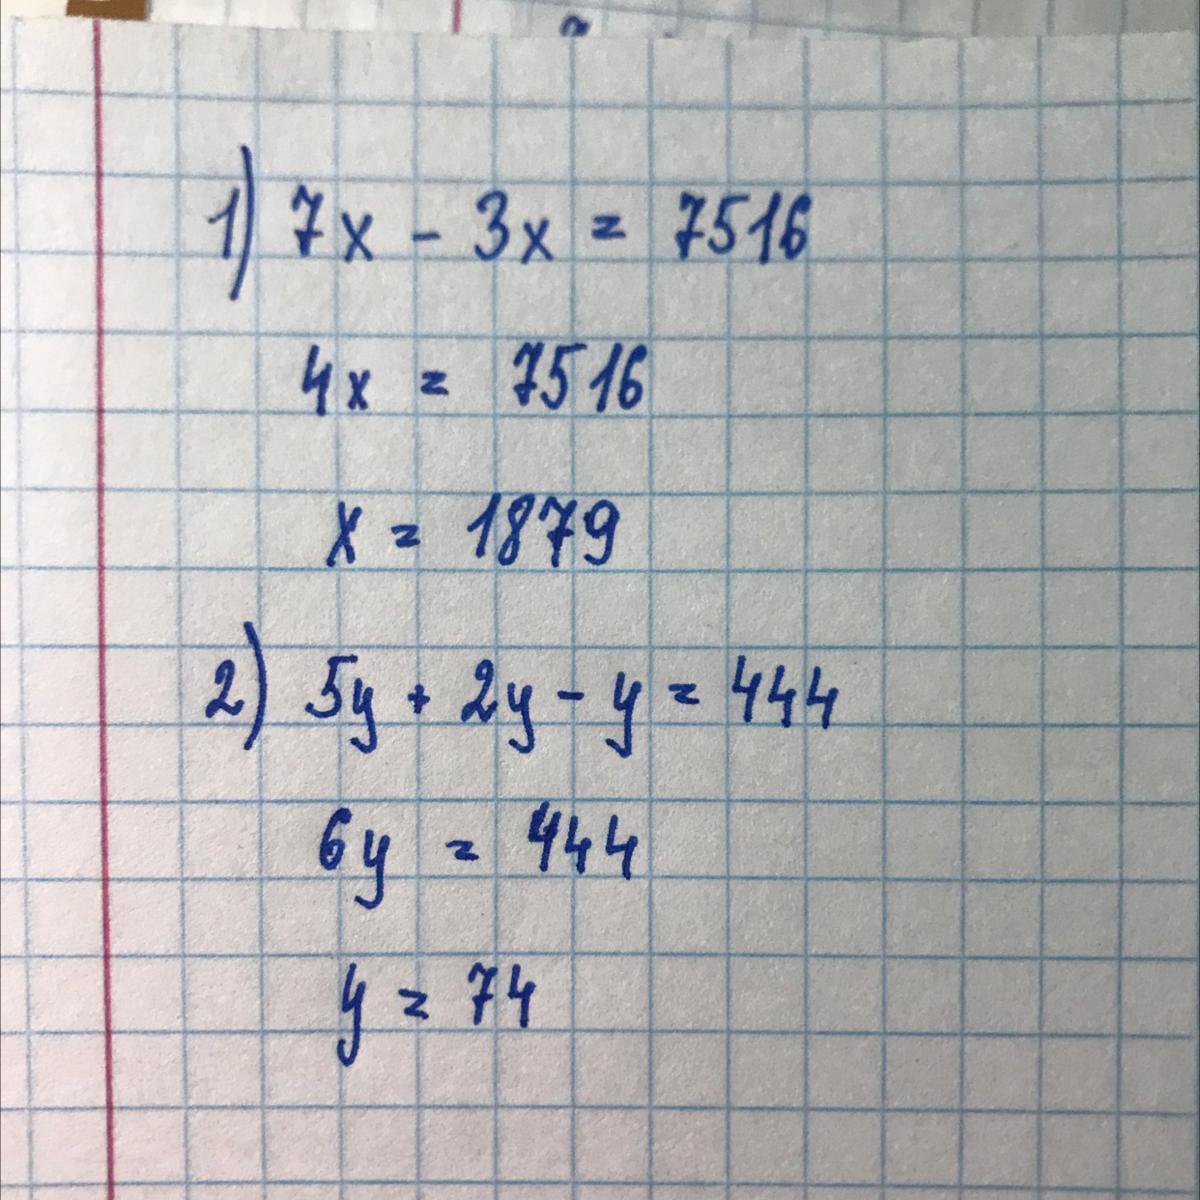 1) 7x - 3x = 7516
4x = 7516
x = 1879
2) 5y + 2y - y = 444
6y = 444
y = 74